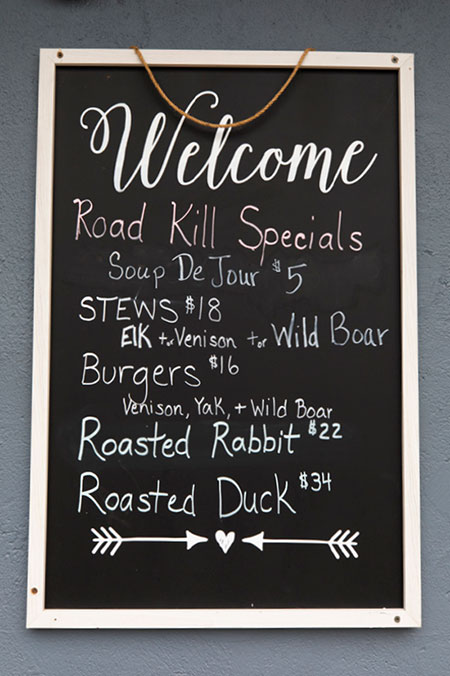 Welcome
Road Kill Specials
Soup De Jour $5
STEWS $18
Elk + or Venison + or Wild Boar
Burgers $16
Venison, Yak, + Wild Boar
Roasted Rabbit $22
Roasted Duck $34